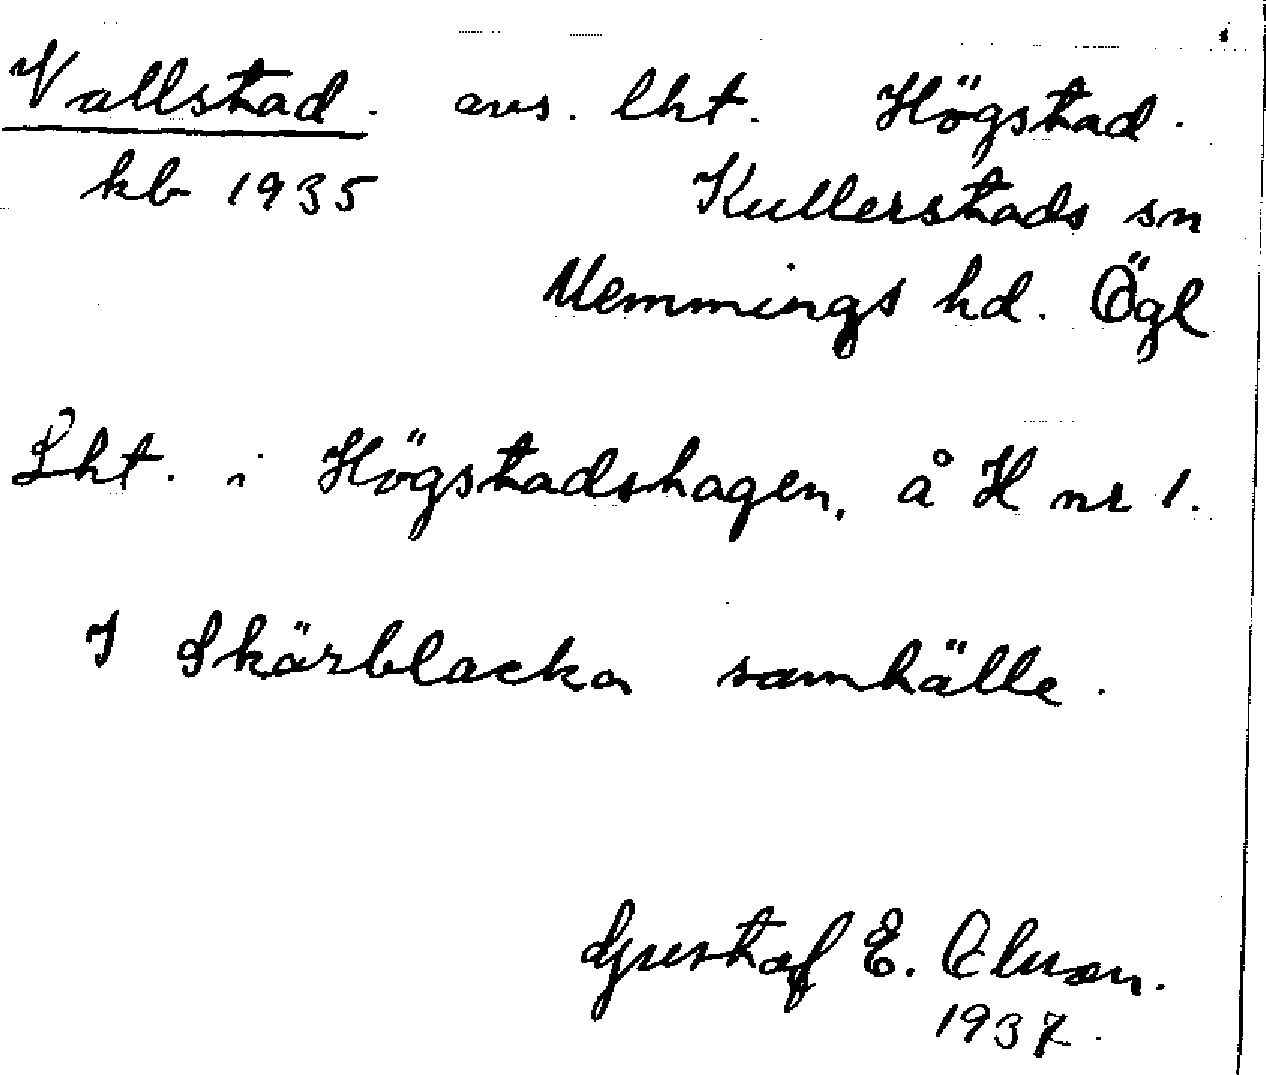 Vallstad. avs. lht. Högstad.
kb 1935 Kullerstads sn
Memmings hd. Ögl
Lht. i Högstadshagen, å H nr 1.
I Skärblacka samhälle.
Gustaf E. Olsson.
1937.